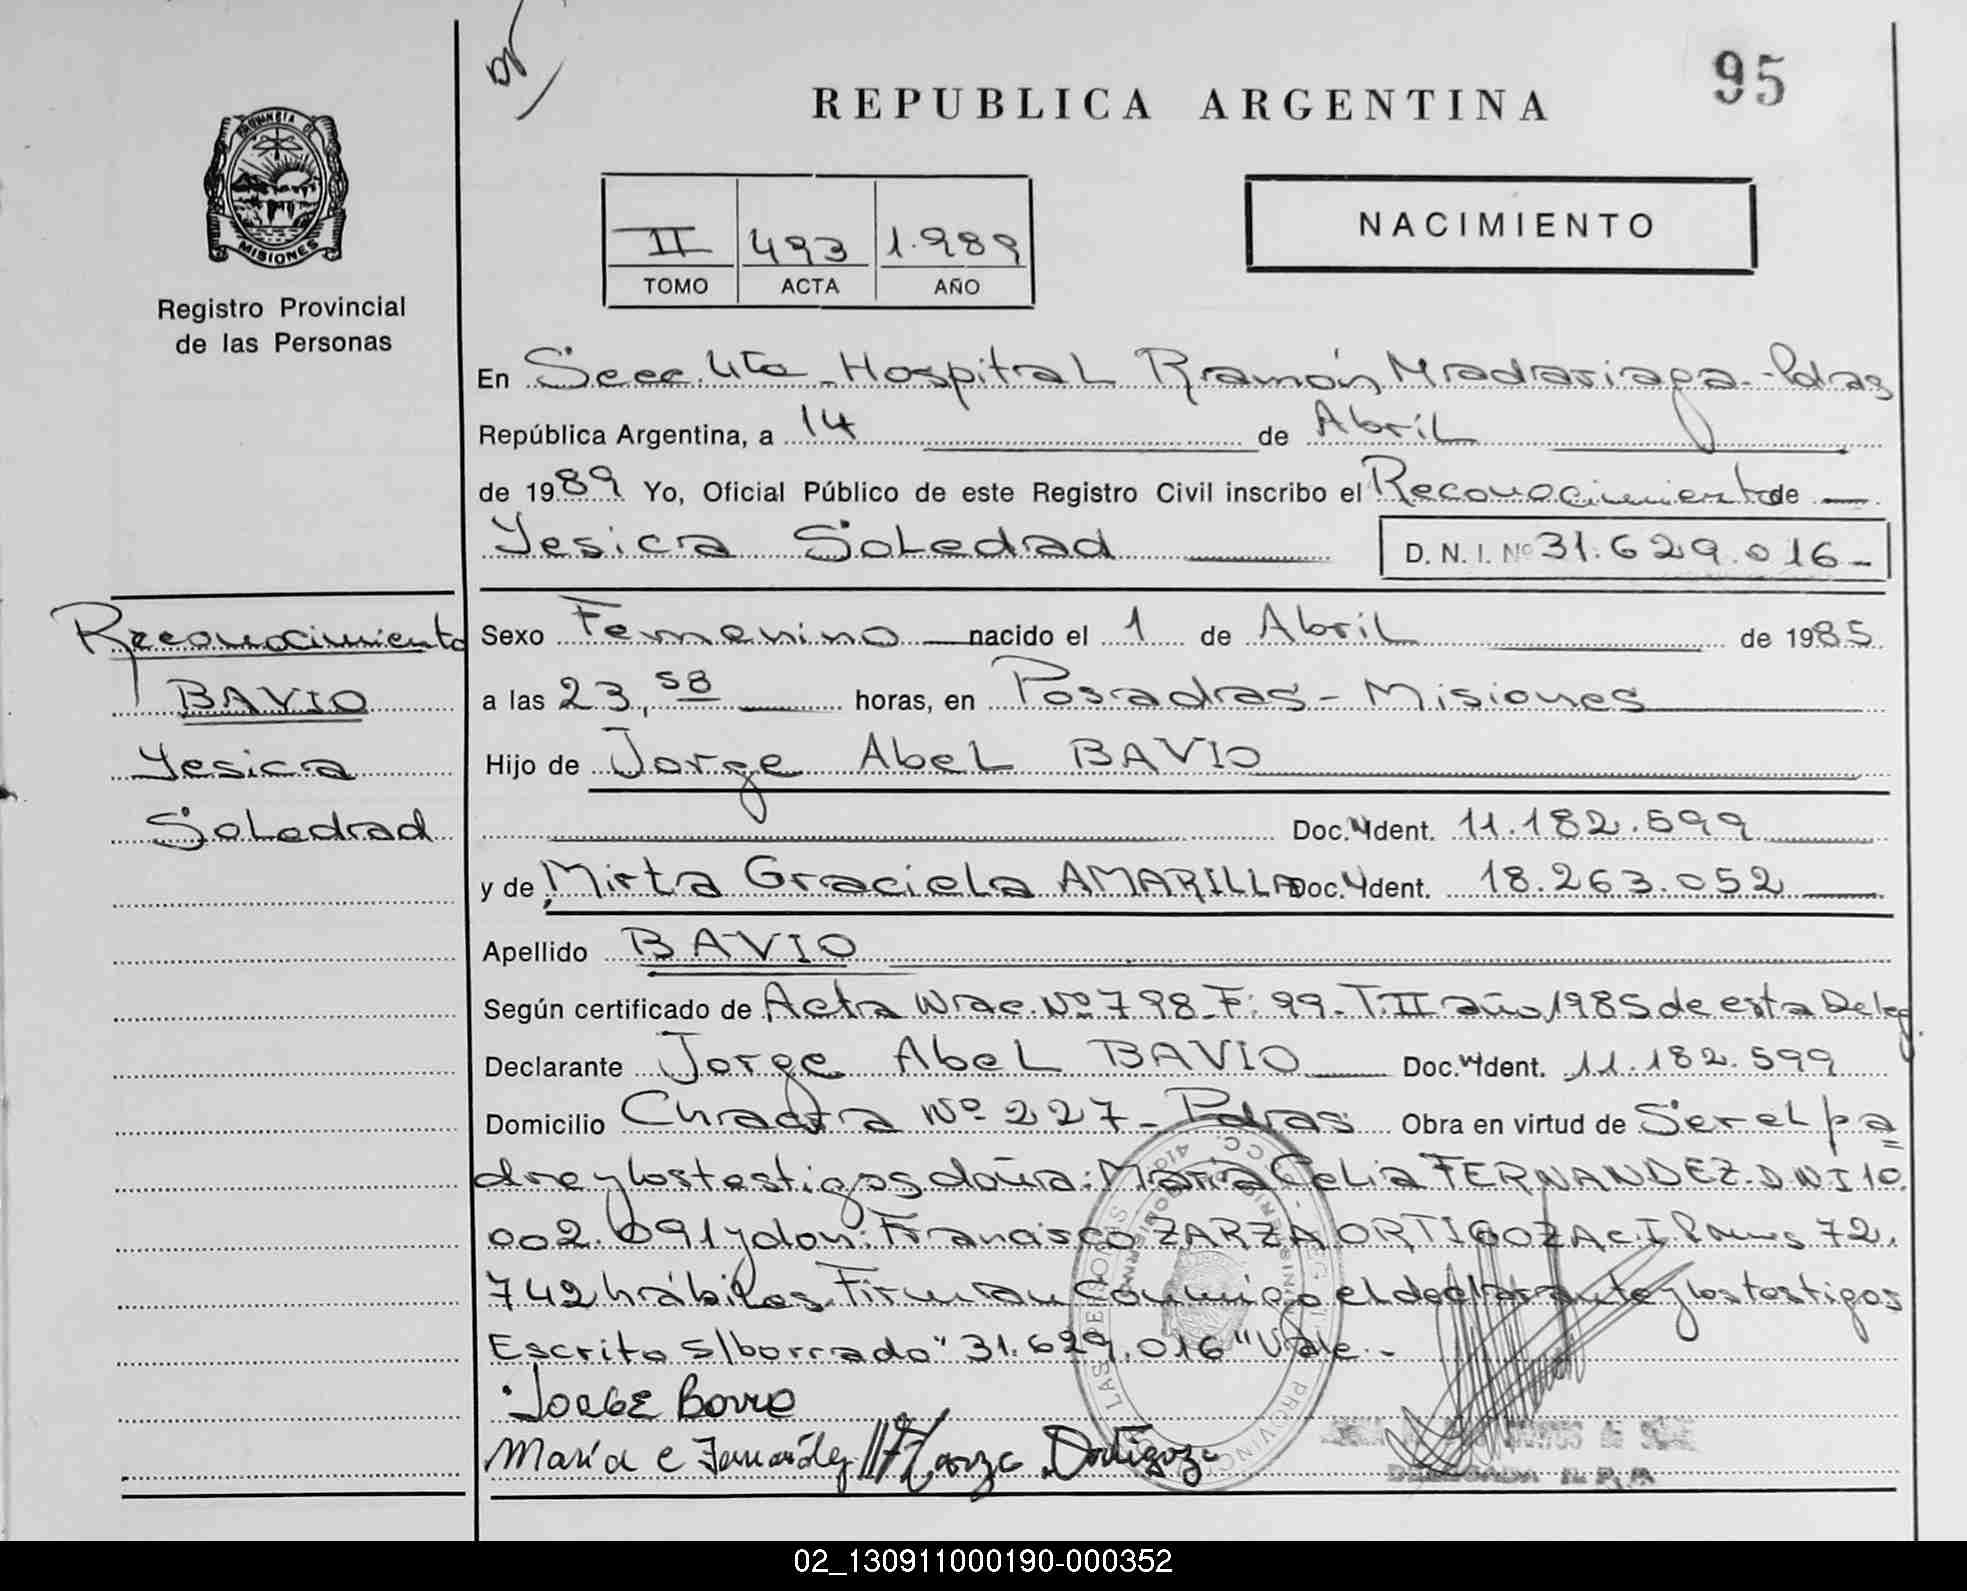 95
REPUBLICA ARGENTINA
PROVINCIA DE
MISIONES
Registro Provincial
de las Personas
NACIMIENTO
II 493 1.989
TOMO ACTA AÑO
En Secc. 4ta - Hospital Ramón Madariaga - Pdas
República Argentina, a 14 de Abril
de 1989 Yo, Oficial Público de este Registro Civil inscribo el Reconocimiento de
Yesica Soledad D. N. I. Nº 31.629.016-
Reconocimiento
BAVIO
Yesica
Soledad
Sexo Femenino nacido el 1 de Abril de 1985
a las 23,58 horas, en Posadas - Misiones
Hijo de Jorge Abel BAVIO
Doc. Ident. 11.182.599
y de Mirta Graciela AMARILLA Doc. Ident. 18.263.052
Apellido BAVIO
Según certificado de Acta Nac. Nº 798 - F: 99 - T. II año 1985 de esta Deleg.
Declarante Jorge Abel BAVIO Doc. Ident. 11.182.599
Domicilio Chacra Nº 227 - Pdas. Obra en virtud de Ser el pa
dre y los testigos doña: María Celia FERNANDEZ. DNI 10.
002.091 y don: Francisco ZARZA ORTIGOZA C.I. 72.
742 hábiles. Firman Conmigo el declarante y los testigos
Escrito s/borrado "31.629.016" Vale.-
JORGE
María C Fernández Zarza Ortigoza
02_130911000190-000352